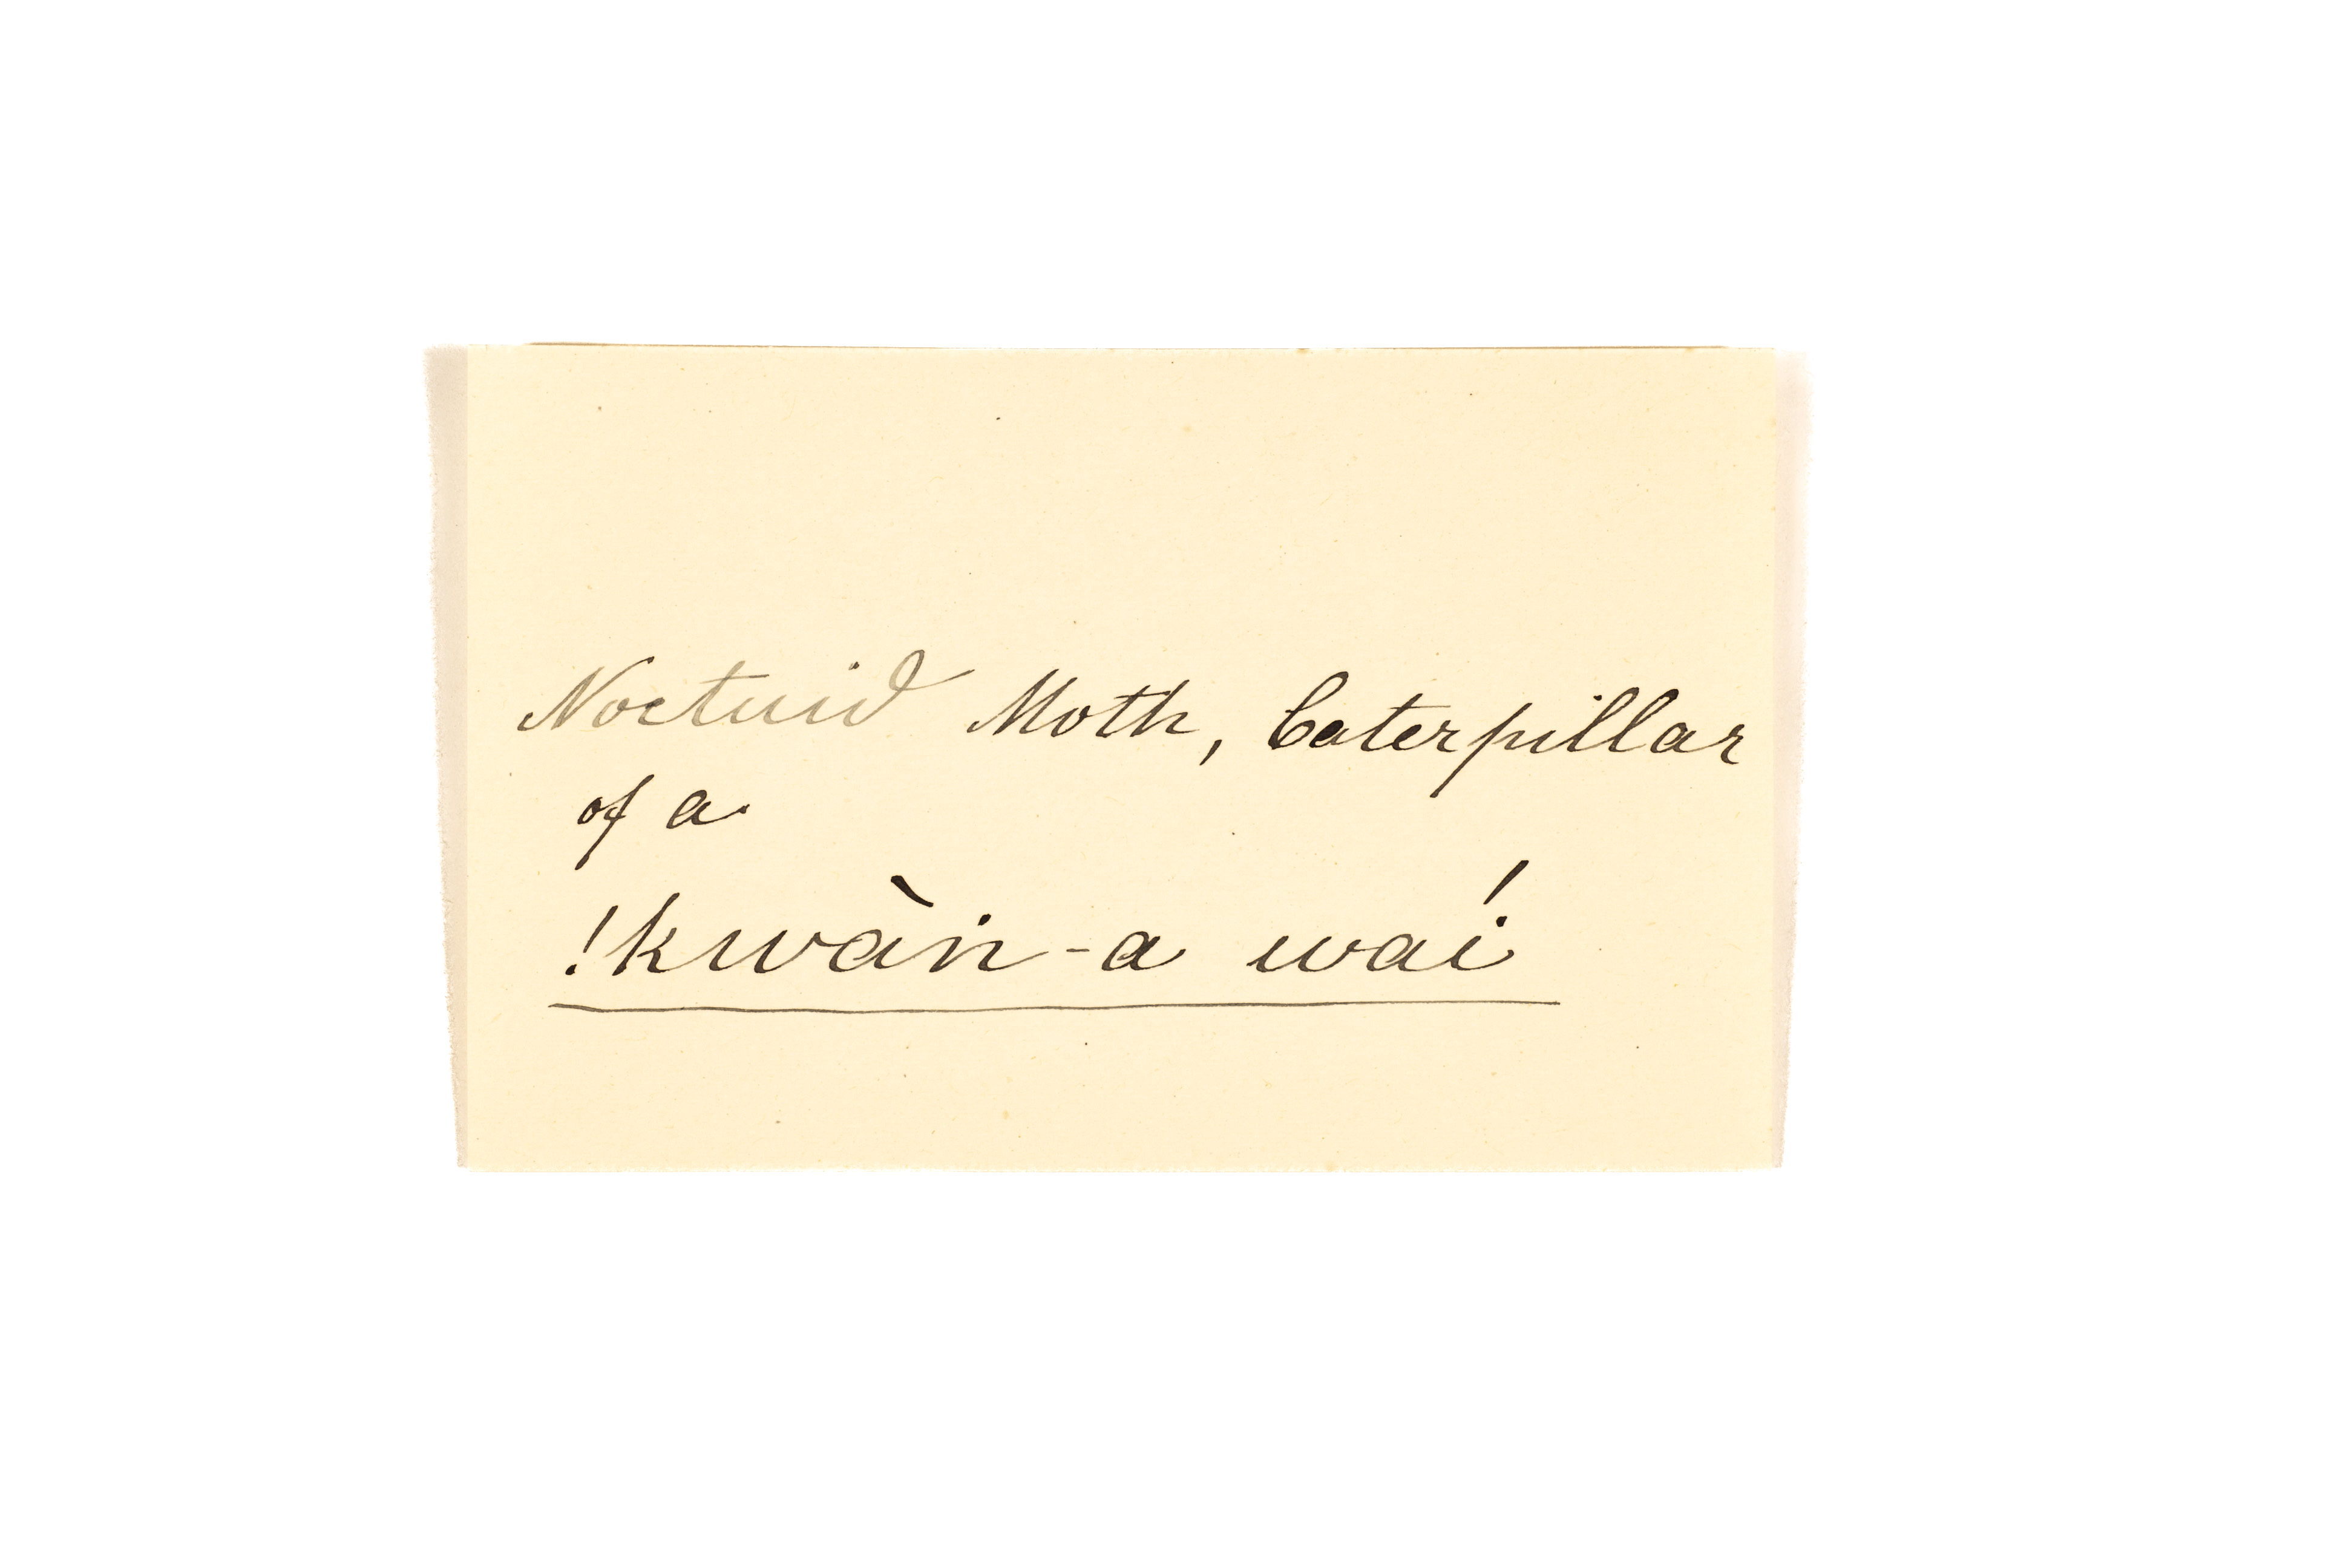 Noctuid Moth, Caterpillar
of a
!kwàṅ-a waí